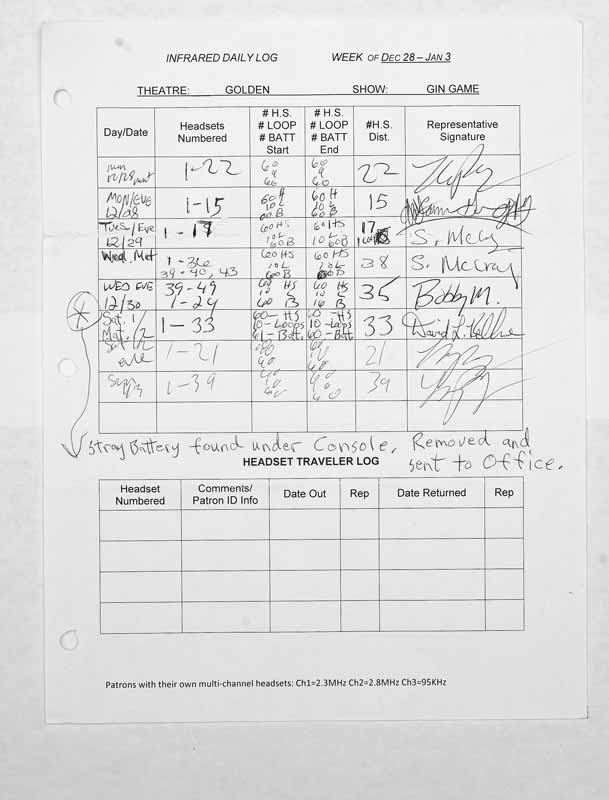 INFRARED DAILY LOG WEEK OF DEC 28 – JAN 3
THEATRE: GOLDEN SHOW: GIN GAME
Day/Date
Headsets
Numbered
# H.S.
# LOOP
# BATT
Start
# H.S.
# LOOP
# BATT
End
#H.S.
Dist.
Representative
Signature
12/28 mat
1-22
60
9
60
60
9
60
22
MON/EVE
12/28
1-15
60H
10L
60B
60H
10L
60B
15
TUES/EVE
12/29
1-17
60HS
10L
60B
60HS
10L
60B
17
S. McCray
Wed. Mat
1-36
39-40, 43
60HS
10L
60B
60HS
10L
38
S. McCray
WED EVE
12/30
39-49
1-24
60 HS
10 L
60 B
60 HS
10 L
35
Bobby M.
Sat. 1/
Mat. 1/2
1-33
60-HS
10-Loops
61-Batt.
60-HS
10-Loops
60-Batt.
33
David L.
eve
1-21
21
1-39
39
* Stray Battery found under Console. Removed and
sent to Office.
HEADSET TRAVELER LOG
Headset
Numbered
Comments/
Patron ID Info
Date Out
Rep
Date Returned
Rep
Patrons with their own multi-channel headsets: Ch1=2.3MHz Ch2=2.8MHz Ch3=95KHz